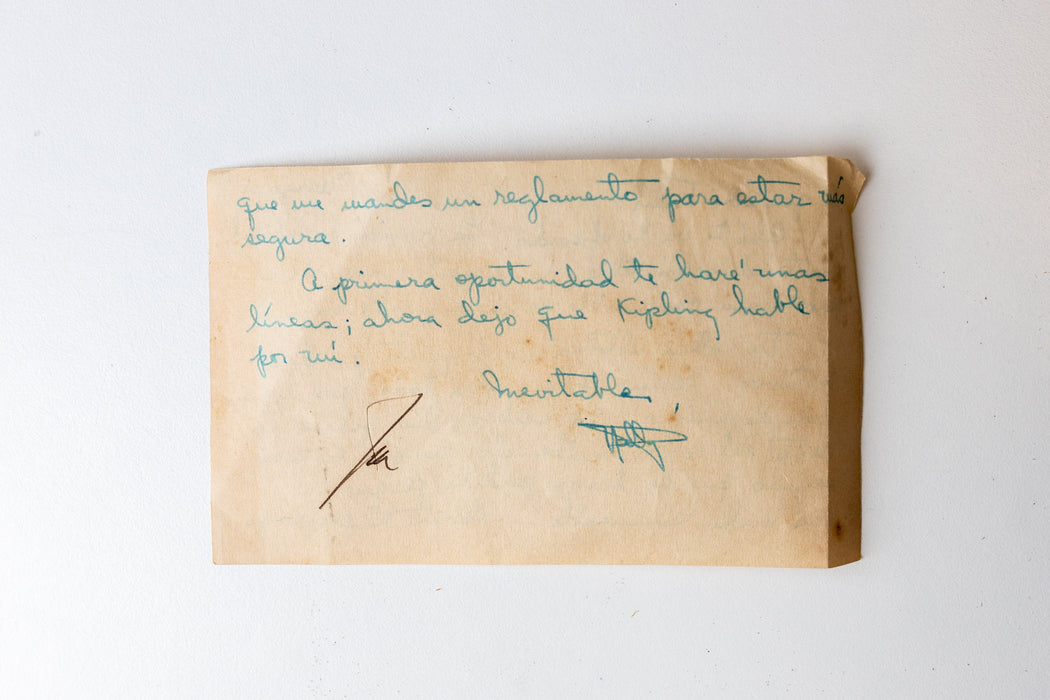 que me mandes un reglamento para estar más
segura.
A primera oportunidad te haré unas
líneas; ahora dejo que Kipling hable
por mí.
Inevitable,